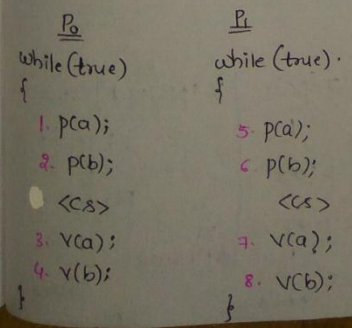 P0
while (true)
{
1. p(a);
2. p(b);
<CS>
3. v(a);
4. v(b);
}
P1
while (true).
{
5. p(a);
6. p(b);
<CS>
7. v(a);
8. v(b);
}